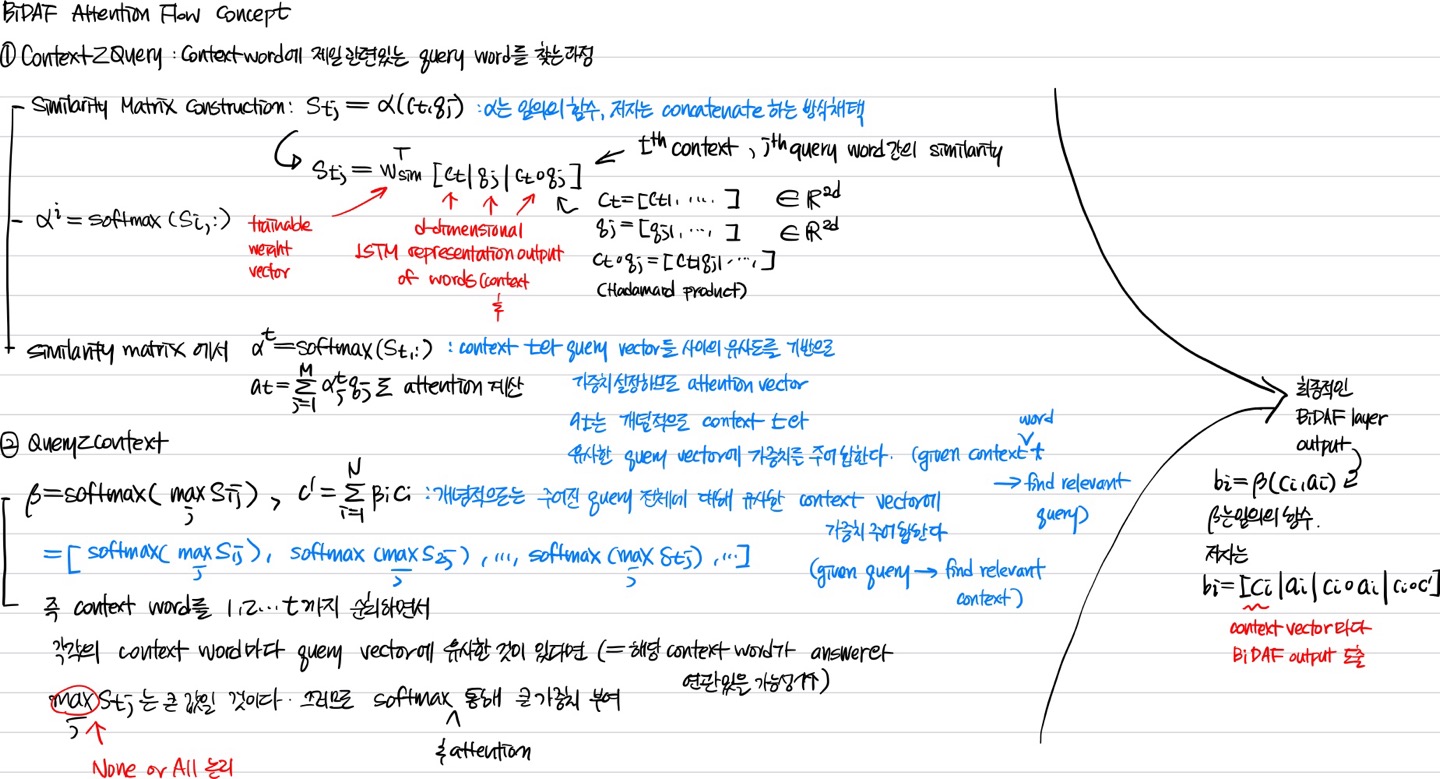 BiDAF Attention Flow Concept
① Context2Query : Context word에 제일 관련있는 query word를 찾는과정
Similarity Matrix Construction: Stj = α(ct, qj) : α는 임의의 함수, 저자는 concatenate 하는 방식채택
Stj = wsim^T [ct|qj|ct∘qj] ← t^th context, j^th query word간의 similarity
ct=[ct1, ....] ∈ R^2d
α^i = softmax(Si,:)
trainable
weight
vector
d-dimensional
LSTM representation output
of words (context
&
qj=[qj1, ..., ] ∈ R^2d
ct∘qj=[ct1qj1, ...,]
(Hadamard product)
similarity matrix 에서 α^t=softmax(St,:) : context t와 query vector들 사이의 유사도를 기반으로
at=Σ_{j=1}^{M} α^t_j qj 로 attention 계산
가중치 설정하므로 attention vector
at는 개념적으로 context t와
유사한 query vector에 가중치를 주어 합한다. (given context word t
→ find relevant
query)
② Query2Context
β=softmax( max_j Sij), c'=Σ_{i=1}^{N} βi ci : 개념적으로는 주어진 query 전체에 대해 유사한 context vector에
가중치 주어 합한다
(given query → find relevant
context)
=[ softmax( max_j S1j), softmax (max_j S2j) , ..., softmax (max_j Stj) , ...]
즉 context word를 1,2...t까지 순회하면서
각각의 context word마다 query vector에 유사한 것이 있다면 (= 해당 context word가 answer와
연관있을 가능성↑↑)
max_j Stj 는 큰 값일 것이다. 그러므로 softmax & attention 통해 큰 가중치 부여
None or All 논리
최종적인
BiDAF layer
output
bi=β(ci,ai)
β는임의의 함수.
저자는
bi=[ci|ai|ci∘ai|ci∘c']
context vector마다
BiDAF output 도출